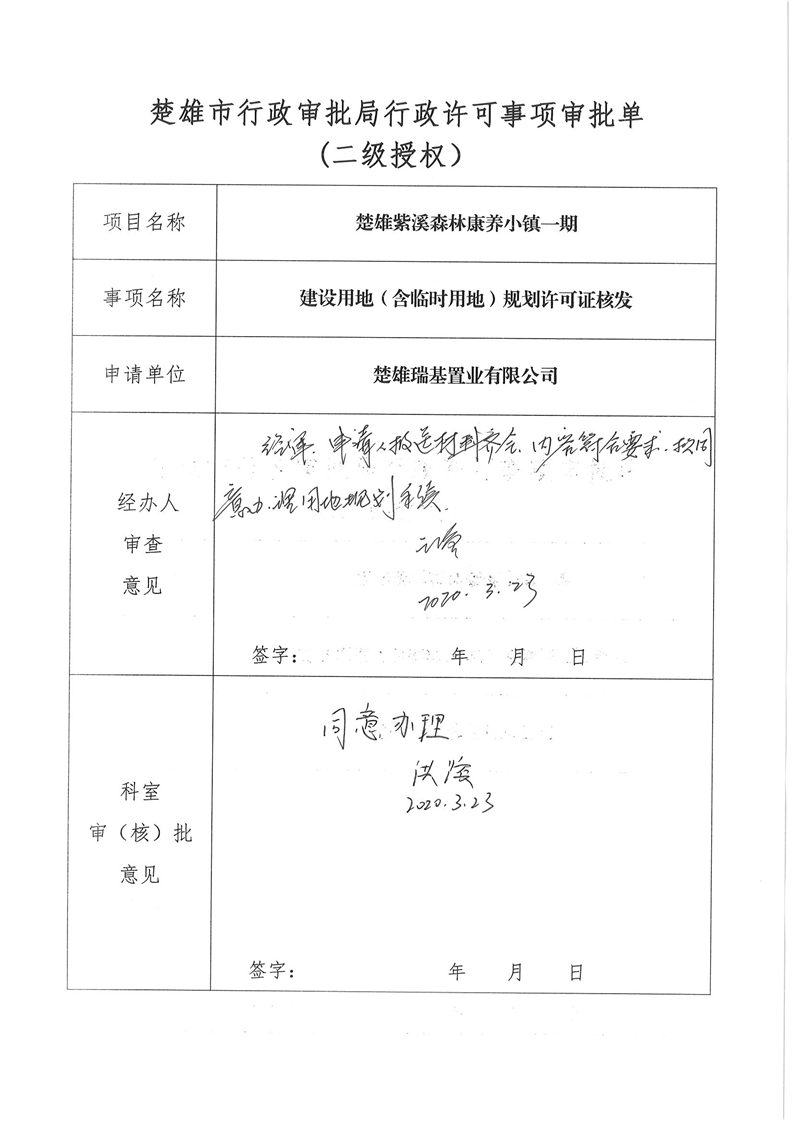 楚雄市行政审批局行政许可事项审批单
(二级授权)
项目名称
楚雄紫溪森林康养小镇一期
事项名称
建设用地(含临时用地)规划许可证核发
申请单位
楚雄瑞基置业有限公司
经办人
审查
意见
申请人报送材料齐全、内容符合要求.拟同
意办理用地规划手续.
2020.3.23
签字: 年 月 日
科室
审(核)批
意见
同意办理
2020.3.23
签字: 年 月 日